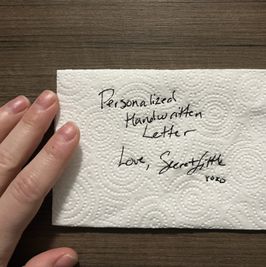 Personalized
Handwritten
Letter
Love, Secret Little
xoxo